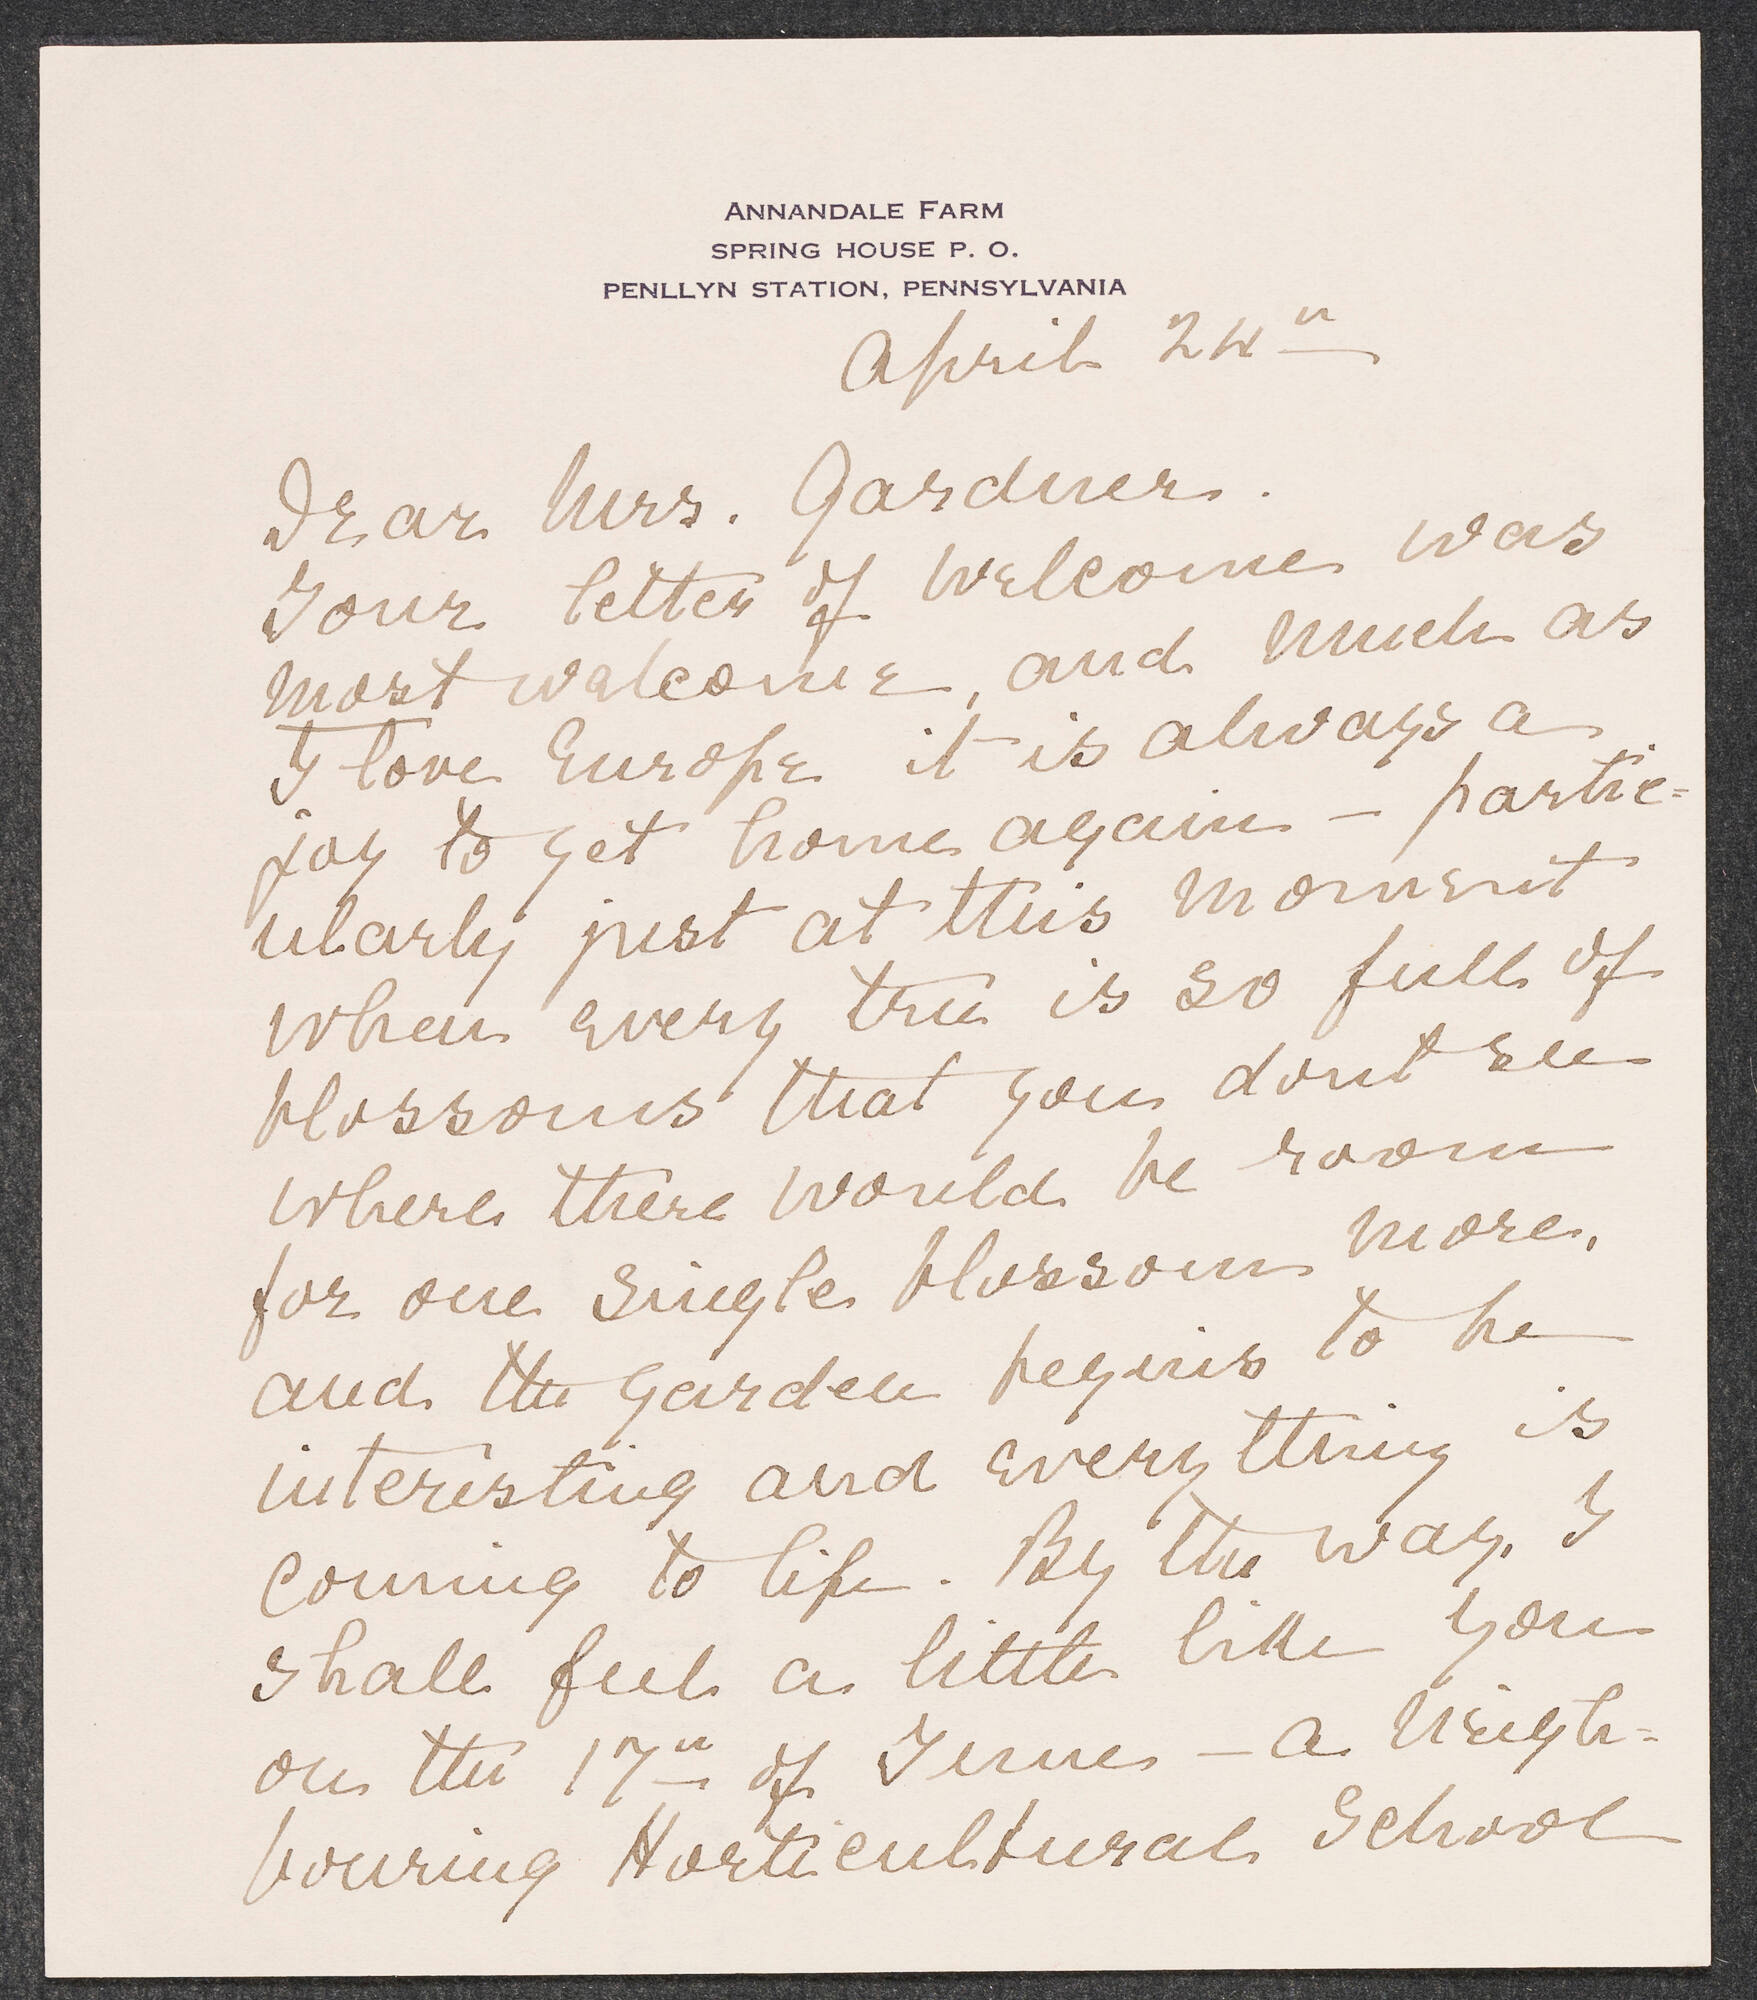 ANNANDALE FARM
SPRING HOUSE P. O.
PENLLYN STATION, PENNSYLVANIA
April 24th
Dear Mrs. Gardner.
Your letter of welcome was
most welcome, and much as
I love Europe it is always a
joy to get home again – partic=
ularly just at this moment
when every tree is so full of
blossoms that you dont see
where there would be room
for one single blossom more,
and the garden begins to be
interesting and everything is
coming to life. By the way, I
shall feel a little like you
on the 17th of June – a neigh=
bouring Horticultural School